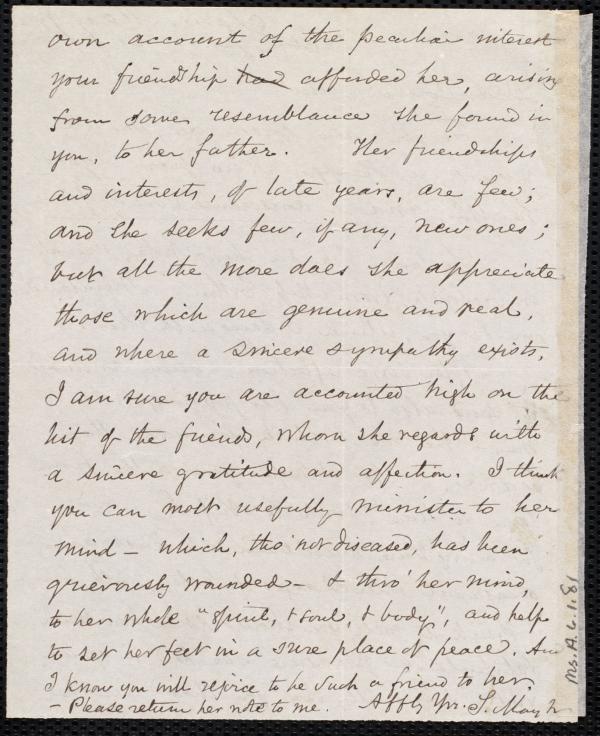 own account of the peculiar interest
your friendship had afforded her, arising
from some resemblance she found in
you, to her father. Her friendships
and interests, of late years, are few;
and she seeks few, if any, new ones;
but all the more does she appreciate
those which are genuine and real,
and where a sincere sympathy exists.
I am sure you are accounted high on the
list of the friends, whom she regards with
a sincere gratitude and affection. I think
you can most usefully minister to her
mind – which, tho' not diseased, has been
grievously wounded – & thro' her mind,
to her whole "spirit, & soul, & body", and help
to set her feet in a sure place of peace. And
I know you will rejoice to be such a friend to her.
– Please return her note to me. Affly Yrs. S. May Jr
Ms. A. 6. 1. 81